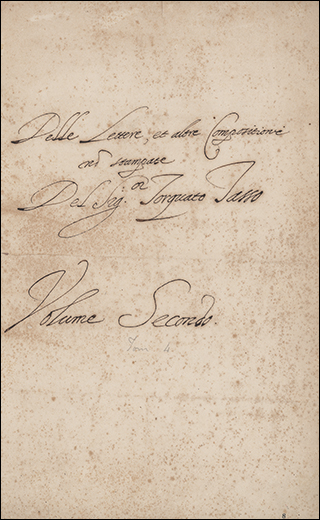 Delle Lettere, et altre Compositioni
non stampate
Del Sig.or Torquato Tasso
Volume Secondo.
8